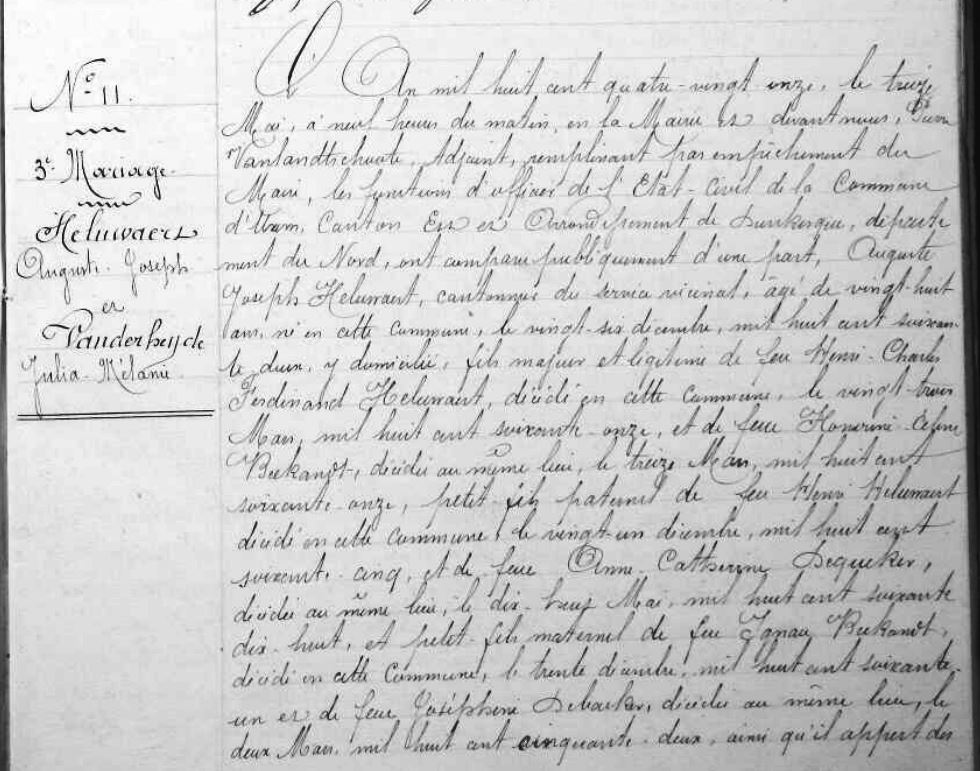 N° 11.
3e Mariage
Heluwaert
Auguste Joseph
et
Vanderheyde
Julia-Mélanie
L'An mil huit cent quatre-vingt onze, le treize
Mai, à neuf heures du matin, en la Mairie et devant nous, Pierre
Vanlandtschoote, Adjoint, remplissant par empêchement du
Maire, les fonctions d'officier de l'Etat-Civil de la Commune
Canton Est et Arrondissement de Dunkerque, départe
ment du Nord, ont comparu publiquement d'une part, Auguste
Joseph Heluwaert, cantonnier du service vicinal, âgé de vingt-huit
ans, né en cette commune, le vingt-six décembre, mil huit cent soixan-
te deux, y domicilié, fils majeur et légitime de feu Henri-Charles
Ferdinand Heluwaert, décédé en cette commune, le vingt-trois
Mars, mil huit cent soixante-onze, et de feue
Beekandt, décédée au même lieu, le treize Mars, mil huit cent
soixante-onze, petit-fils paternel de feu Henri Heluwaert
décédé en cette commune, le vingt-un décembre, mil huit cent
soixante-cinq, et de feue Anne-Catherine Dequeker,
décédée au même lieu, le dix-huit Mai, mil huit cent soixante
dix-huit, et petit-fils maternel de feu Ignace Beekandt,
décédé en cette Commune, le trente décembre, mil huit cent soixante-
un et de feue Joséphine Debacker, décédée au même lieu, le
deux Mars, mil huit cent cinquante-deux, ainsi qu'il appert des